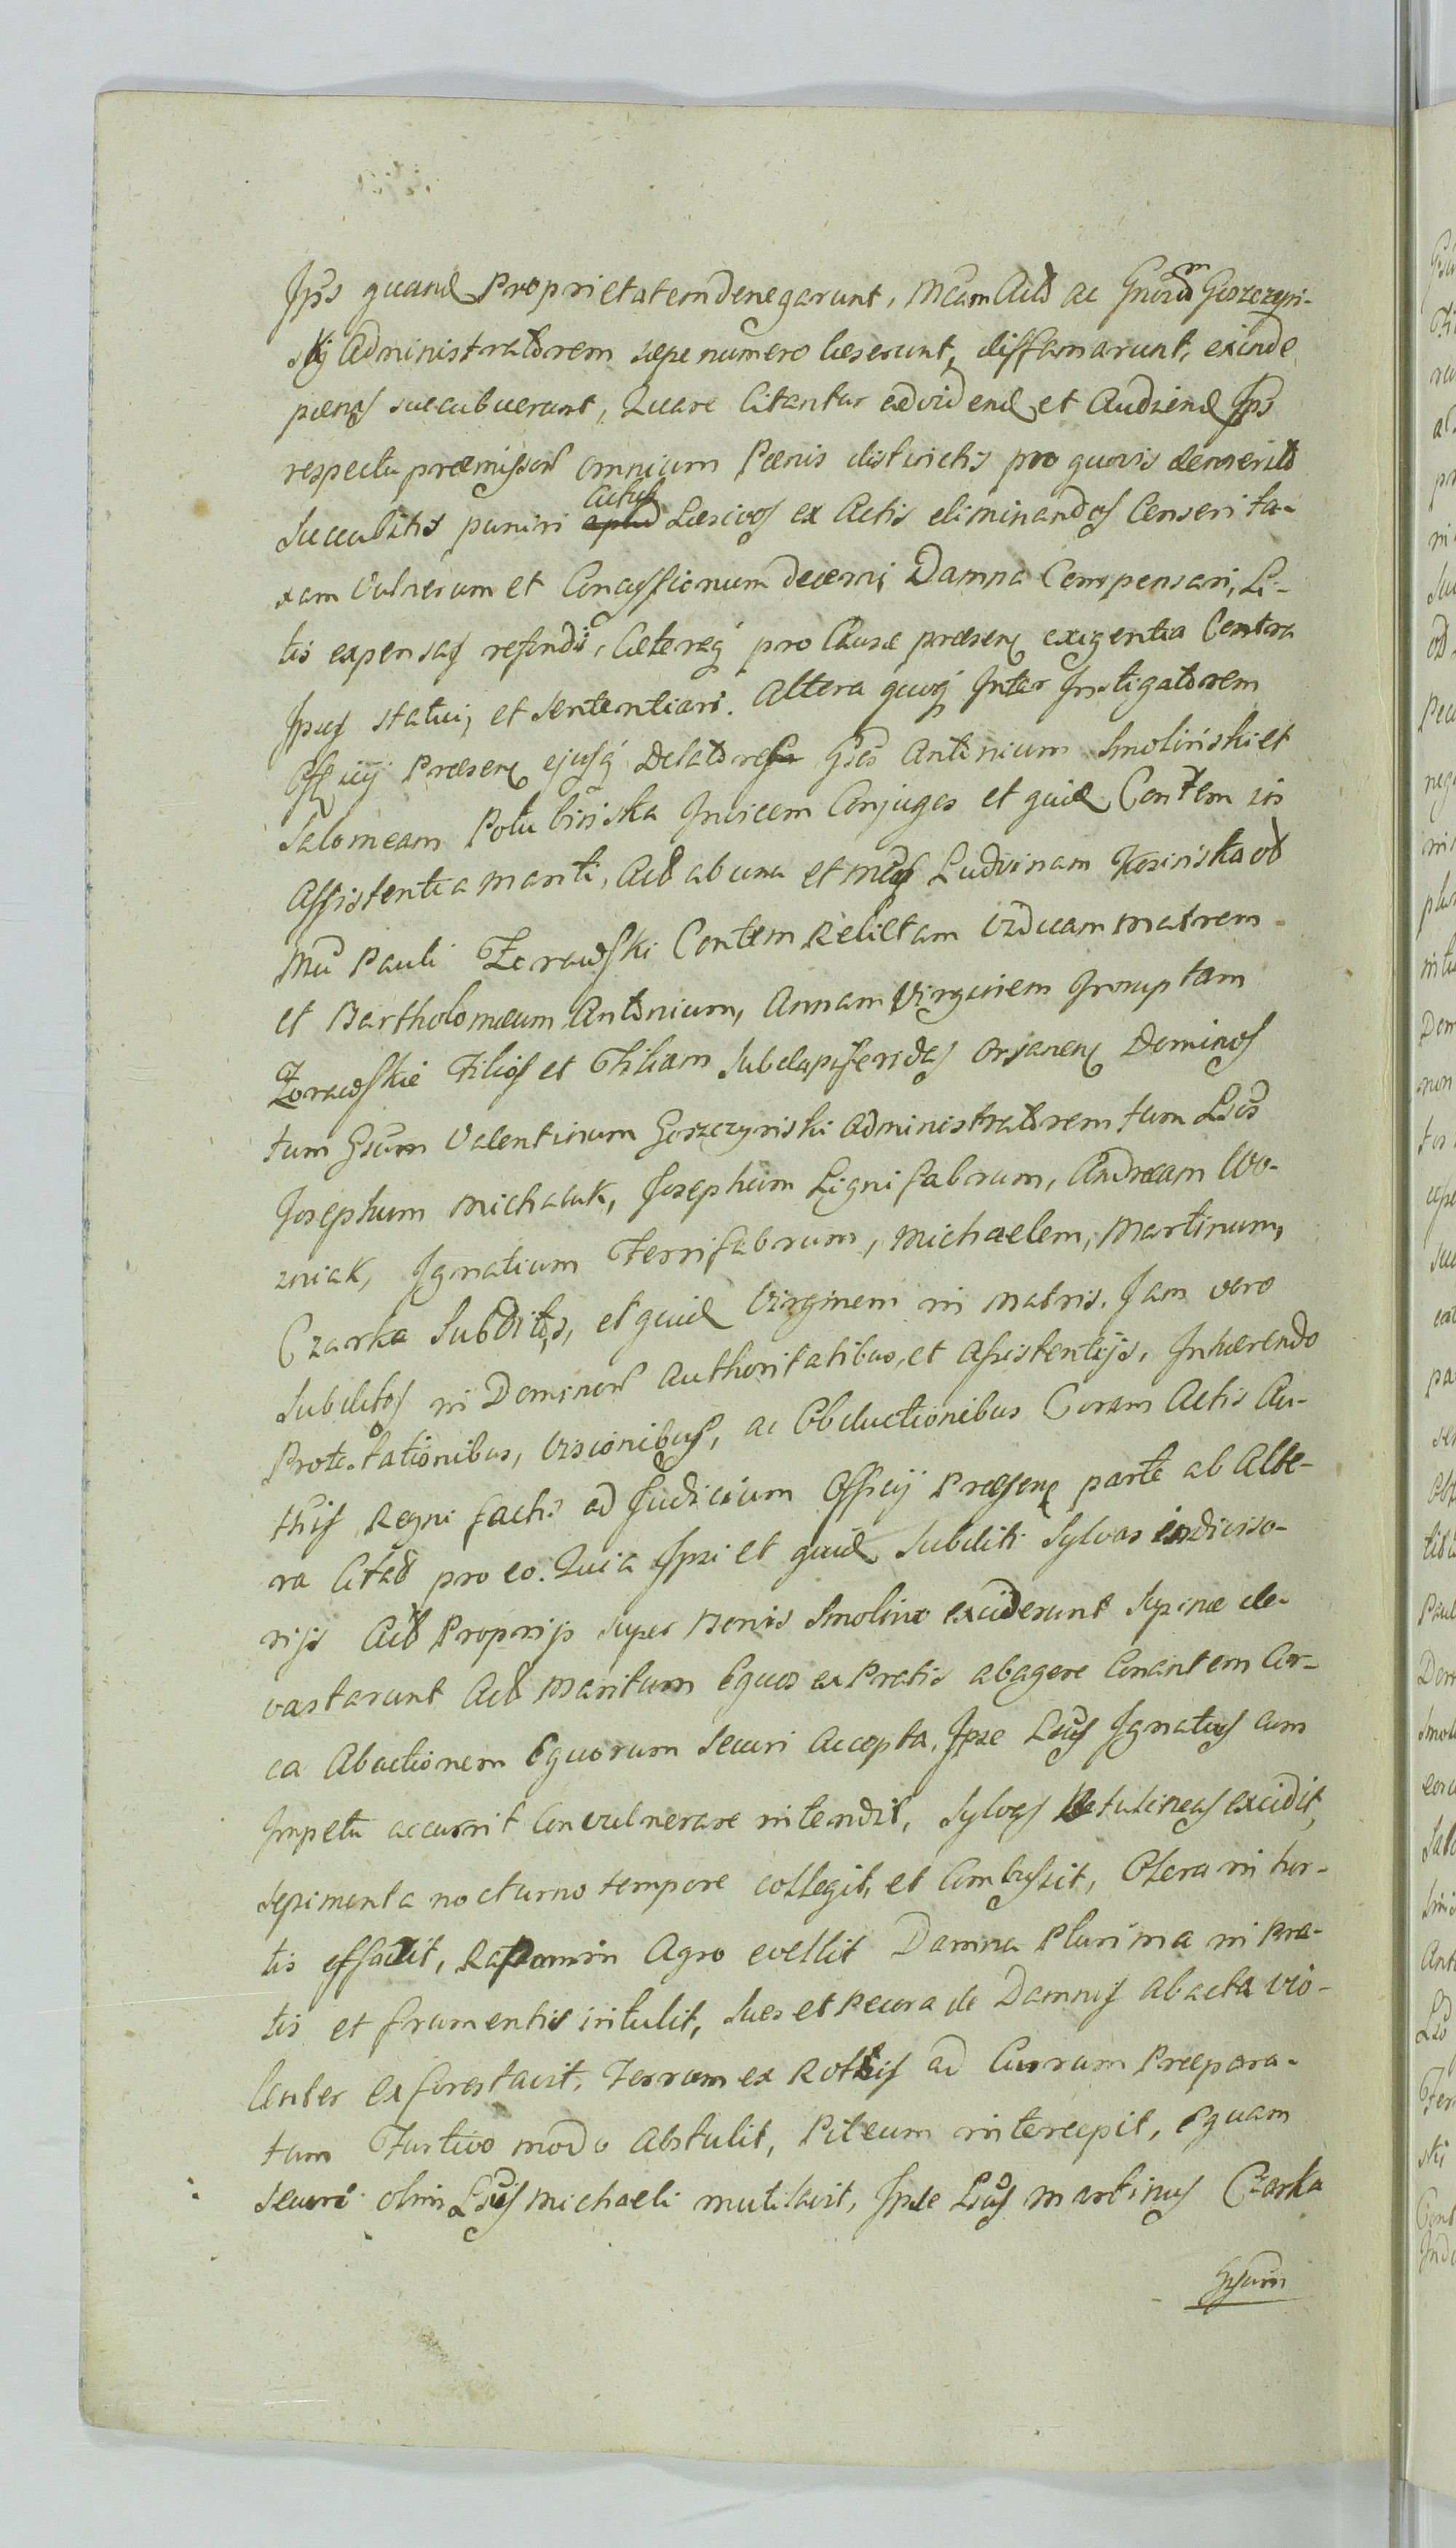 Ips quand Proprietatem denegarunt, Mcam Actd ac Gnosum Goszczyń-
skij Administratorem sæpenumero læserunt, diffamarunt, exinde
pœnas succubuerunt, Quare Citantur advidend et Audiend Ips
respectu præmissor omnium Pœnis districtis pro quovis demerito
succubitis puniri Actus Læsivos ex Actis eliminandos Censeri ta-
xam Vulnerum et Concussionum decerni Damna Compensari, Li-
tis expensas refundi, Cæteraq pro Causæ præsen exigentia Contra
Ipsos statui, et sententiari. Altera quoq Inter Instigatorem
Officij Præsen ejusq Delatores Gsos Antonium Smoliński et
Salomeam Potubińska Invicem Conjuges et quid Contem in
Assistentia mariti, Act ab una et Mcas Ludvinam Kosińska od
Mci Pauli Żorawski Contem Relictam Viduam matrem
et Bartholomæum Antonium, Annam Virginem Innuptam
Żorawskie Filios et Filiam Subdapiferidas Orsanen Dominos
tum Gsum Valentinum Goszczyński Administratorem tum Lsos
Josephum Michaluk, Josephum Lignifabrum, Andream Wo-
zniak, Ignatium Ferrifabrum, Michaelem, Martinum,
Czarka Subditos, et quid Virginem in Matris. Jam vero
Subditos in Dominor Authoritatibus, et Assistentijs, Inhærendo
Protestationibus, Visionibus, ac Obductionibus Coram Actis Au-
this Regni factis ad Judicium Officij Præsen parte ab Alte-
ra Citat pro eo. Quia Ipsi et quid Subditi Sylvas indiviso-
rijs Act Proprijs super Bonis Smolino exciderunt Sepinæ de-
vastarunt Act Maritum Equos ex Pratis abagere Conantem Cir-
ca Abactionem Equorum Securi Accepta, Ipse Lsus Ignatius cum
Impetu accurrit Convulnerare intendit, Sylvas Betulineas excidit,
sepimenta nocturno tempore collegit, et Combussit, Olera in hor-
tis effodit, Rapam in Agro evellit Damna Plurima in Pra-
tis et frumentis intulit, Sues et Pecora de Damnis abacta vio-
lenter exforestavit, Ferrum ex Rottis ad Currum Præpara-
tum Furtivo modo Abstulit, Pileum intercepit, Equam
securi olim Lsus Michaeli mutilavit, Ipse Lsus Martinus Czarka
Gsum